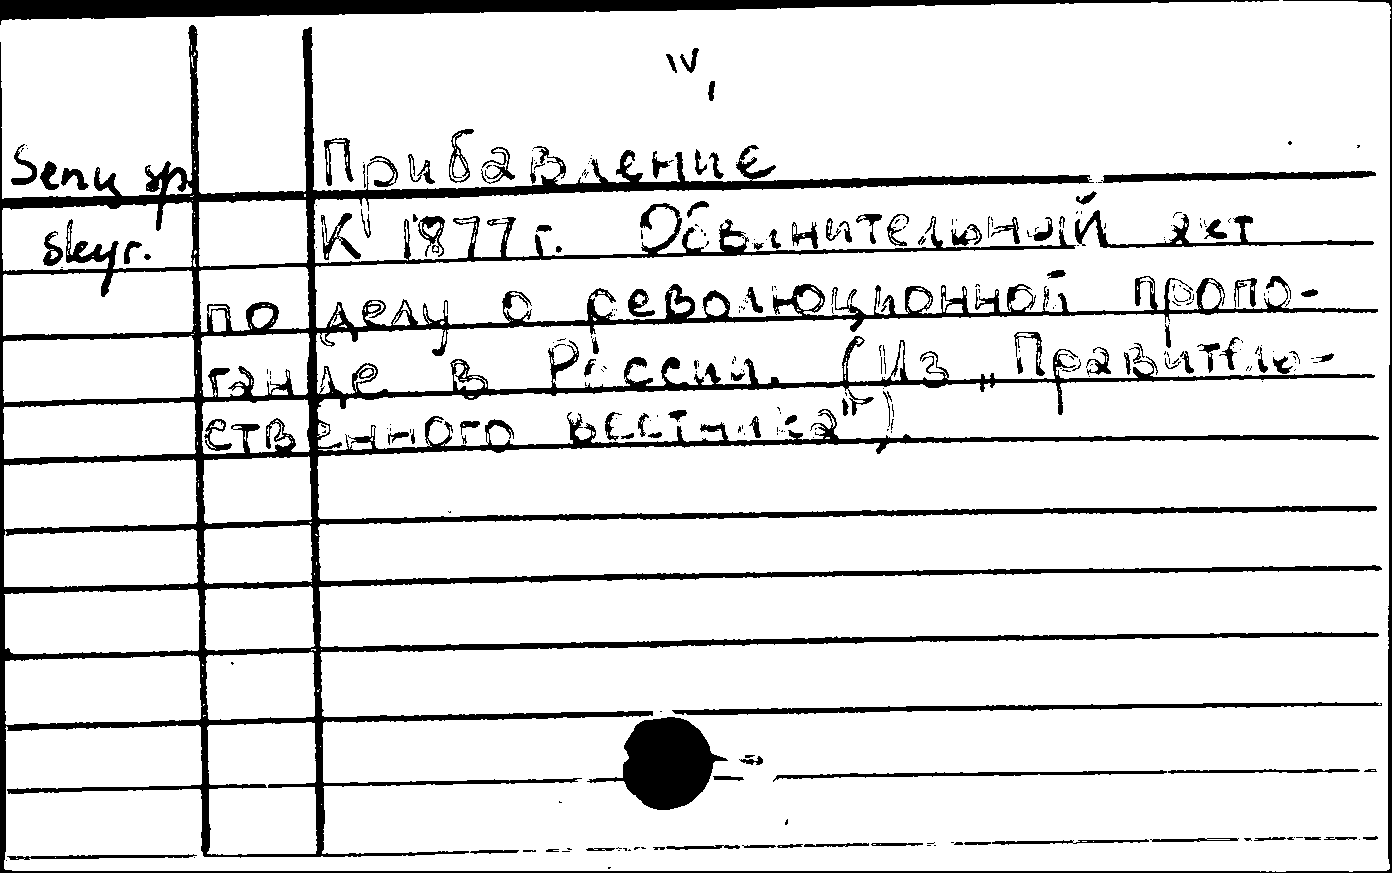 IV,
Senų sp. Прибавление
skyr. К 1877 г. Обвинительный акт
по делу о революционной пропо-
ганде в России. (Из „Правитель-
ственного вестника").